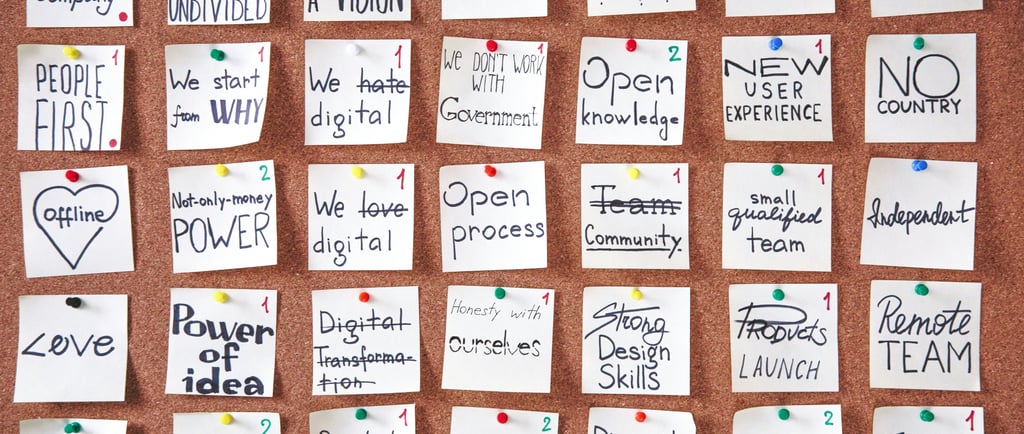 company
UNDIVIDED
A VISION
PEOPLE 1
FIRST
We start 1
from WHY
We hate 1
digital
We DON'T WORK 1
WITH
Government
Open 2
knowledge
NEW 1
USER
EXPERIENCE
NO
COUNTRY
offline
Not-only-money 2
POWER
We love 1
digital
Open
process
Team 1
Community.
small 1
qualified
team
Independent
Love
Power 1
of
idea
Digital
Transforma-
tion
Honesty with 1
ourselves
Strong
Design
Skills
PRODUCTS 1
LAUNCH
Remote
TEAM
2
1
2
2
1